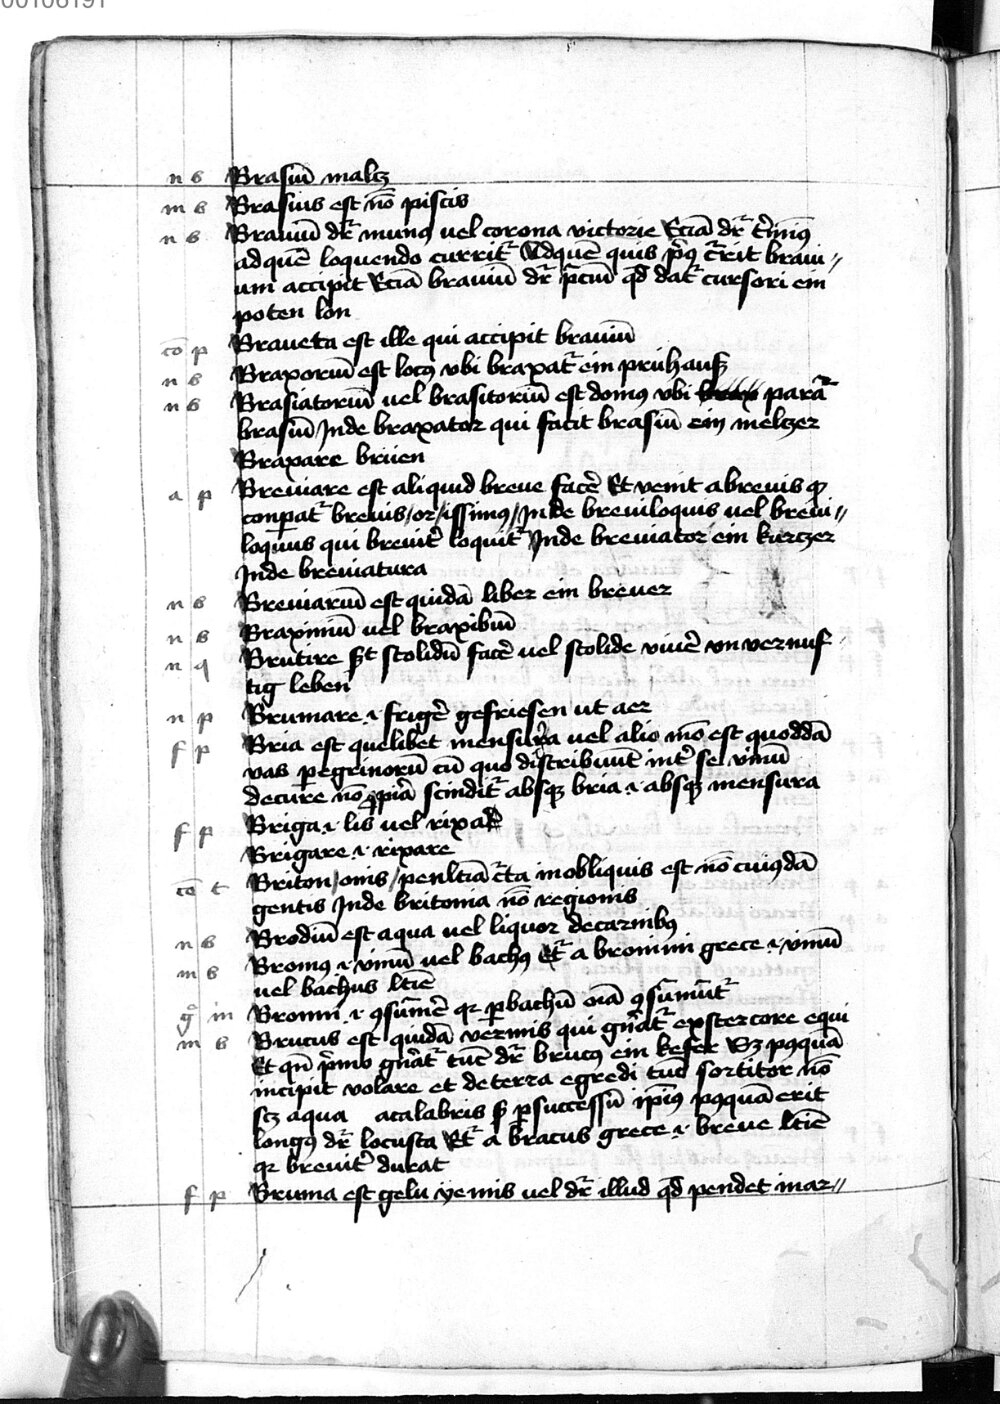 00106191
n s Brasiū maltz
m s Brasius est nō piscis
n s Brauiū dr̄ munꝰ uel corona victorie Eciā dr̄ t̄minꝰ
ad quē loquendo currit᷑ Ad quē quis p̄ꝰ c̄rit braui⸗
um accipit Eciā brauiū dr̄ p̄ciū qd̄ dat᷑ cursori ein
poten lon
cō p Braueta est ille qui accipit brauiū
n s Braxoriū est locꝰ vbi braxat᷑ ein prühauß
n s Brasiatoriū uel brasitoriū est domꝰ vbi parat᷑
brasiū Inde braxator qui facit brasiū ein meltzer
Braxare brüen
a p Breuiare est aliquid breue facē Et venit a breuis qd̄
conparat᷑ breuis/or/issimꝰ/Inde breuiloquis uel breui⸗
loquus qui breuit̄ loquit᷑ Inde breuiator ein kurtzer
Inde breuiatura
n s Breuiariū est quidā liber ein breuer
n s Braximiū uel braxibiū
n q Brutire est stolidū facē uel stolide viuē vnvernuf⸗
tig leben
n p Brumare .i. frigē gefriesen ut aer
f p Bria est quelibet mensura uel alio mō est quoddā
vas pegrinorū cū quo distribuunt int̄ se vinū
decure nō ꝓpiā scindit᷑ absqꝫ bria .i. absqꝫ mensura
f p Briga .i. lis uel rixa
Brigare .i. rixare
cō t Briton/onis/penltiā c̄ta in obliquis est nō cuiusdā
gentis Inde britonia nō regionis
n s Brodiū est aqua uel liquor de carnibꝰ
m s Bromꝰ .i. vinū uel bachꝰ Et᷑ a bromin grece .i. vinū
uel bachus ltīe
g̊ m Bromi .i. ꝯsūmē qr per bachū oīa ꝯsūmūt᷑
m s Brucus est quidā vermis qui gn̄at᷑ ex stercore equi
Et qn̄ p̄mo gn̄at᷑ tūc dr̄ brucꝰ ein kefer Sꝫ pꝯquā
incipit volare et de terra egredi tūc sortitor nō
scꝫ aqua acalabris sꝫ p successū ip̄ius pꝯquā erit
longꝰ dr̄ locusta Et᷑ a bracus grece .i. breue ltīe
qr breuit̄ durat
f p Bruma est gelu yemis uel dr̄ illud qd̄ pendet mar⸗